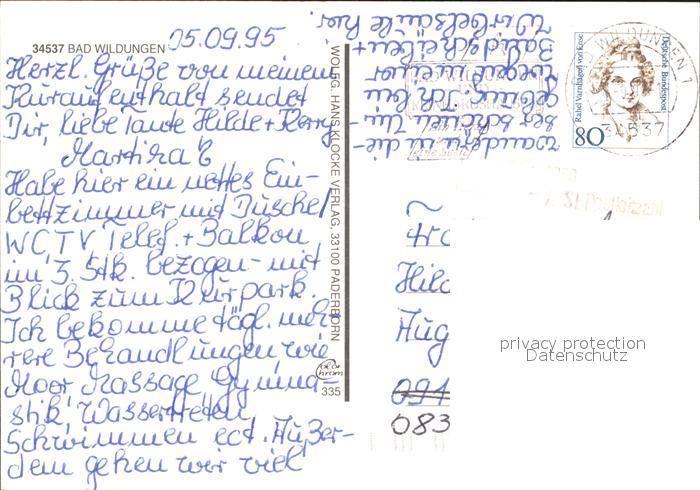 34537 BAD WILDUNGEN 05.09.95
Herzl. Grüße von meinem
Kuraufenthalt sendet
Dir, liebe Tante Hilde + Harry
Martina
Habe hier ein nettes Ein-
bettzimmer mit Dusche/
WC, TV Telef. + Balkon
im 3. Stk. bezogen - mit
Blick zum Kurpark.
Ich bekomme tägl. meh-
rere Behandlungen wie
Moor Massage Gymna-
stik, Wassertreten,
Schwimmen ect. Außer-
dem gehen wir viel
wandern in die-
ser schönen Um-
gebung. Ich bin
wegen meiner
Bandscheiben +
Wirbelsäule hier.
WOLFG. HANS KLOCKE VERLAG, 33100 PADERBORN
335
Deutsche Bundespost
80
BAD WILDUNGEN 1
34537
Hild
Aug
091
083
privacy protection
Datenschutz